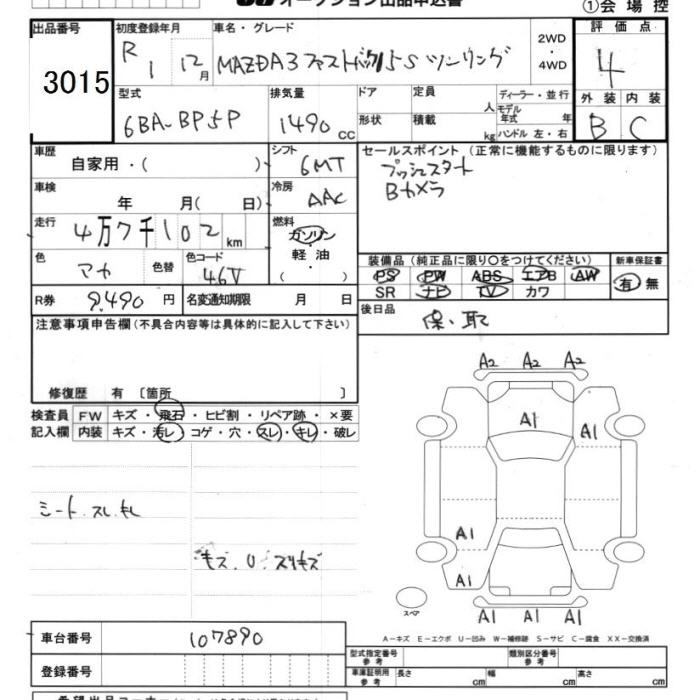 オークション出品申込書
①会場控
出品番号 初度登録年月 車名・グレード 評価点
3015 R 1 12月 MAZDA3 ファストバック15S ツーリング 2WD・4WD 4
型式 排気量 ドア 定員 人 ディーラー・並行 外装 内装
6BA-BP5P 1490 CC 形状 積載 kg モデル年式 年 ハンドル 左・右 B C
車歴 自家用・( ) シフト 6MT セールスポイント (正常に機能するものに限ります)
プッシュスタート
Bカメラ
車検 年 月( 日) 冷房 AAC
走行 4万7千102 km 燃料 ガソリン・軽油・( )
色 マカ 色替 色コード 46V
装備品(純正品に限り〇をつけてください) 新車保証書
PS PW ABS エアB AW 有 無
SR ナビ TV カワ
R券 9,490 円 名変通知期限 月 日
後日品 保・取
注意事項申告欄(不具合内容等は具体的に記入して下さい)
修復歴 有 〔箇所 〕
検査員 FW キズ・飛石・ヒビ割・リペア跡・×要
記入欄 内装 キズ・汚レ・コゲ・穴・スレ・キレ・破レ
A2 A2 A2
A1 A1
シート.スレ キレ
キズ.U.スリキズ
A1
A1
スペア
A1 A1 A1
A-キズ E-エクボ U-凹み W-補修跡 S-サビ C-腐食 XX-交換済
車台番号 107890
型式指定番号 参考 類別区分番号 参考
登録番号
車庫証明用 参考 長さ cm 幅 cm 高さ cm